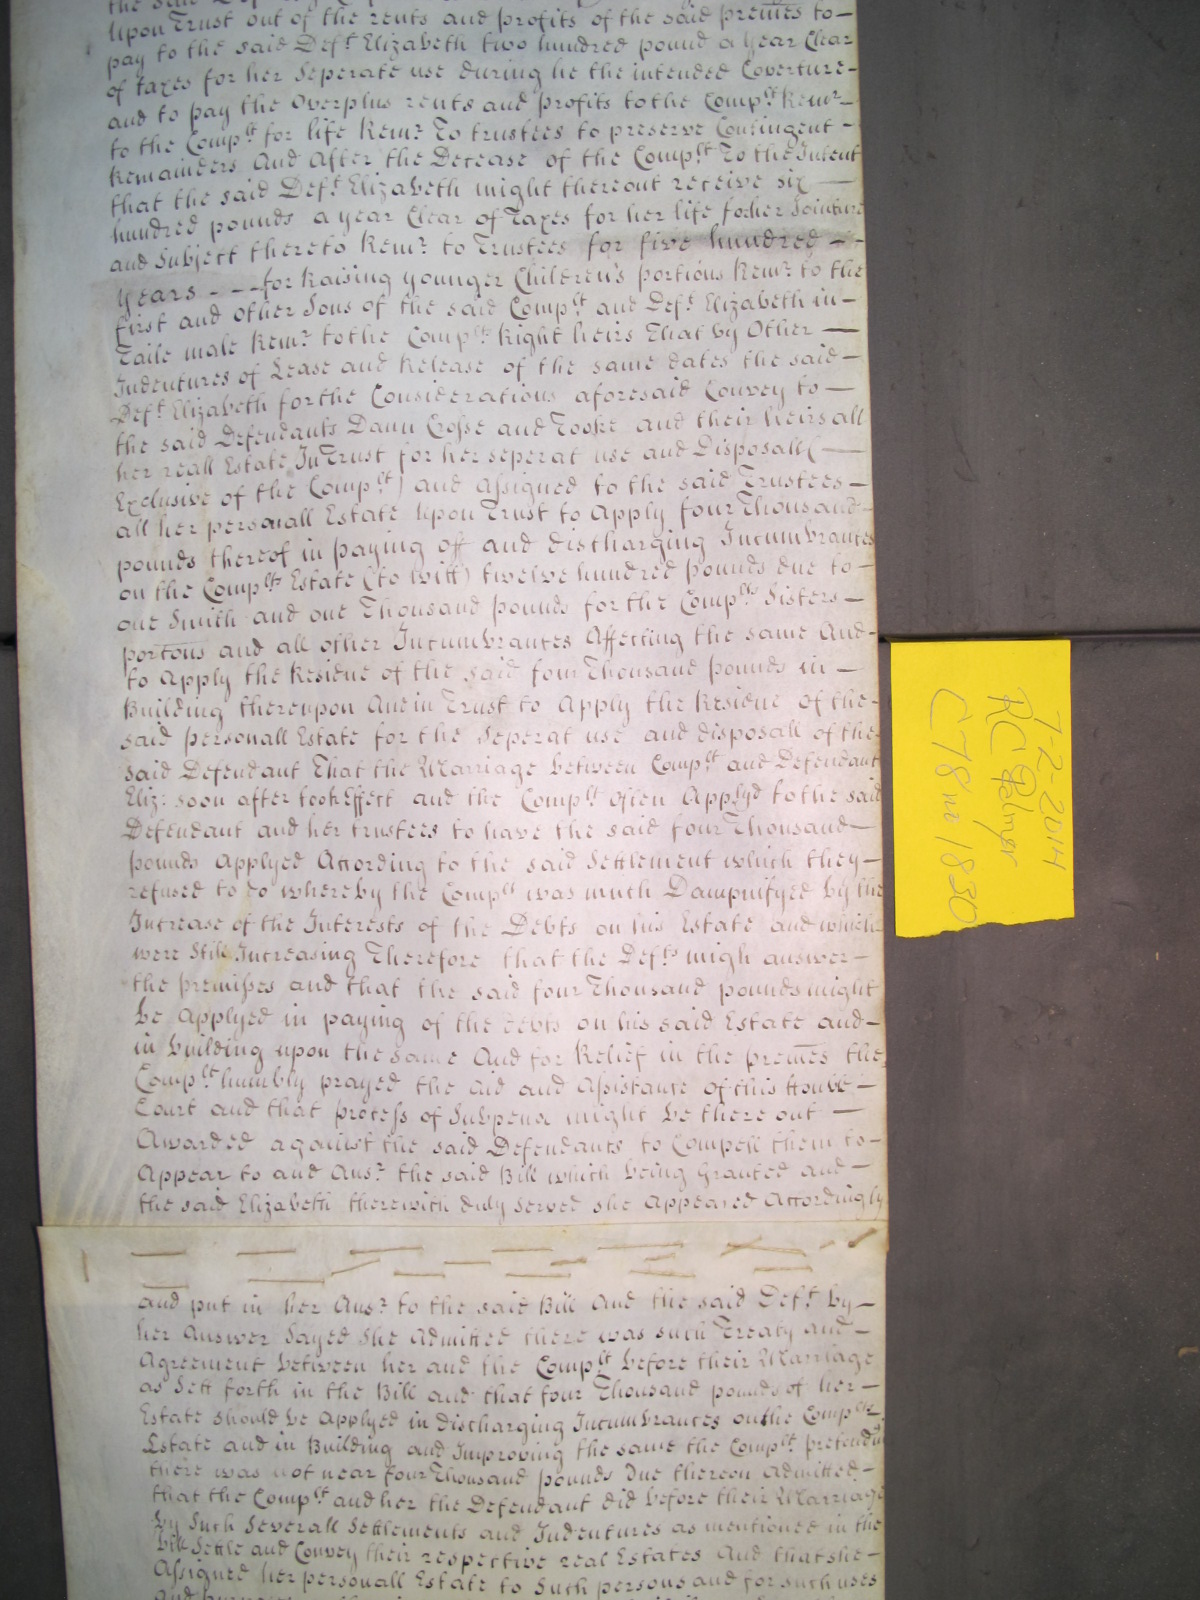 the said
upon Trust out of the rents and profits of the said premes to
pay to the said Deft Elizabeth two hundred pound a year Clear
of taxes for her seperate use during he the intended Coverture
and to pay the Overplus rents and profits to the Complt Remr
to the Complt for life Remr To trustees to preserve Contingent
Remainders And After the Decease of the Complt To the Intent
that the said Deft Elizabeth might thereout receive six
hundred pounds a year Clear of Taxes for her life for her Jointure
and Subject thereto Remr to Trustees for five hundred
years - - - for Raising younger Children's portions Remr to the
first and other Sons of the said Complt and Deft Elizabeth in
Taile male Remr to the Complts Right heirs That by Other
Indentures of Lease and Release of the same dates the said
Deft Elizabeth for the Considerations aforesaid Convey to
the said Defendants Dann Crosse and Tooke and their heirs all
her reall Estate In Trust for her seperat use and Disposall (
Exclusive of the Complt) and assigned to the said Trustees
all her personall Estate Upon Trust to Apply four Thousand
pounds thereof in paying off and discharging Incumbrances
on the Complts Estate (to witt) twelve hundred pounds due to
one Smith and one Thousand pounds for the Complts Sisters
portons and all other Incumbrances Affecting the same And
to Apply the Residue of the said four Thousand pounds in
Building thereupon And in Trust to Apply the Residue of the
said personall Estate for the Seperat use and disposall of the
said Defendant That the Marriage between Complt and Defendant
Eliz: soon after took Effect and the Complt often Applyd to the said
Defendant and her trustees to have the said four Thousand
pounds Applyed According to the said Settlement which they
refused to do whereby the Complt was much Dampnifyed by the
Increase of the Interests of the Debts on his Estate and which
were Still Increasing Therefore that the Defts migh answer
the premisses and that the said four Thousand pounds might
be Applyed in paying of the debts on his said Estate and
in building upon the same And for Relief in the premes the
Complt humbly prayed the aid and Assistance of this Honble
Court and that process of Subpena might be there out
Awarded against the said Defendants to Compell them to
Appear to and Ansr the said Bill which being Granted and
the said Elizabeth therewith duly served she Appeared Accordingly
and put in her Ansr to the said Bill And the said Deft by
her Answer sayed she Admitted there was such Treaty and
Agreement between her and the Complt before their Marriage
as Sett forth in the Bill and that four Thousand pounds of her
Estate should be Applyed in discharging Incumbrances on the Complts
Estate and in Building and Improving the same the Complt pretending
there was not near four Thousand pounds Due thereon Admitted
that the Complt and her the Defendant did before their Marriage
by such Severall Settlements and Indentures as mentioned in the
Bill Settle and Convey their respective real Estates And that she
Assigned her personall Estate to Such persons and for such uses
7-2-2014
RC Palmer
C 78 no 1830